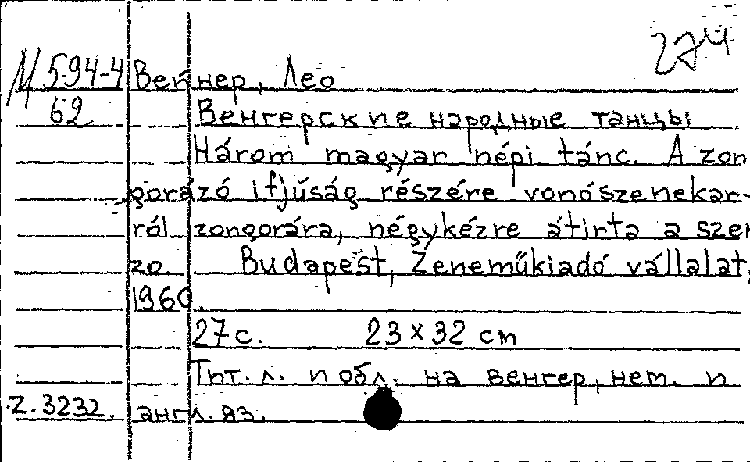 274
М 594-4 Вейнер, Лео
62 Венгерские народные танцы
Három magyar népi tánc. A zon
gorázó ifjúság részére vonószenekar-
ról zongorára, négykézre átírta a szer
zo Budapest, Zeneműkiadó vállalat,
1960.
27 с. 23 × 32 cm
Тит. л. и обл. на венгер, нем. и
Z. 3232. англ. яз.